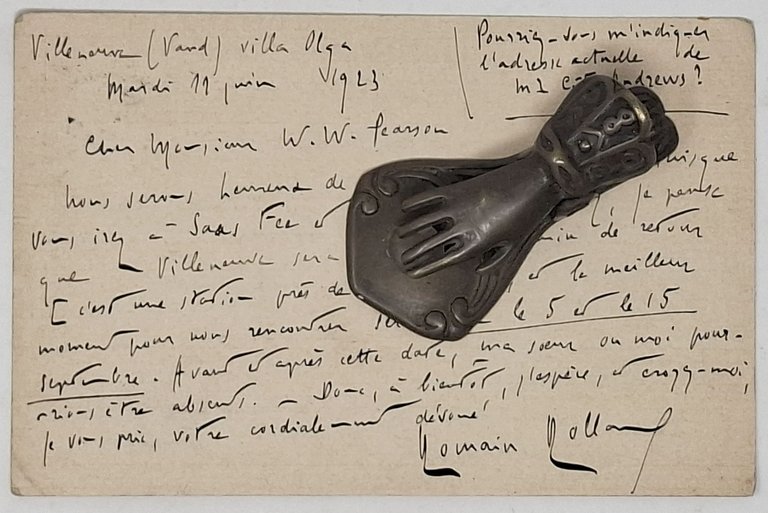 Villeneuve (Vaud) villa Olga
Mardi 11 juin 1923
Pourriez-vous m'indiquer
l'adresse actuelle de
Mr C-F Andrews?
Cher Monsieur W. W. Pearson
Nous serons heureux de puisque
vous irez à Saas Fee et je pense
que Villeneuve sera de retour
[c'est une station près de et le meilleur
moment pour nous rencontrer le 5 et le 15
septembre. Avant et après cette date, ma sœur ou moi pour-
rions être absents. – Donc, à bientôt, j'espère, et croyez-moi,
je vous prie, votre cordialement dévoué
Romain Rolland